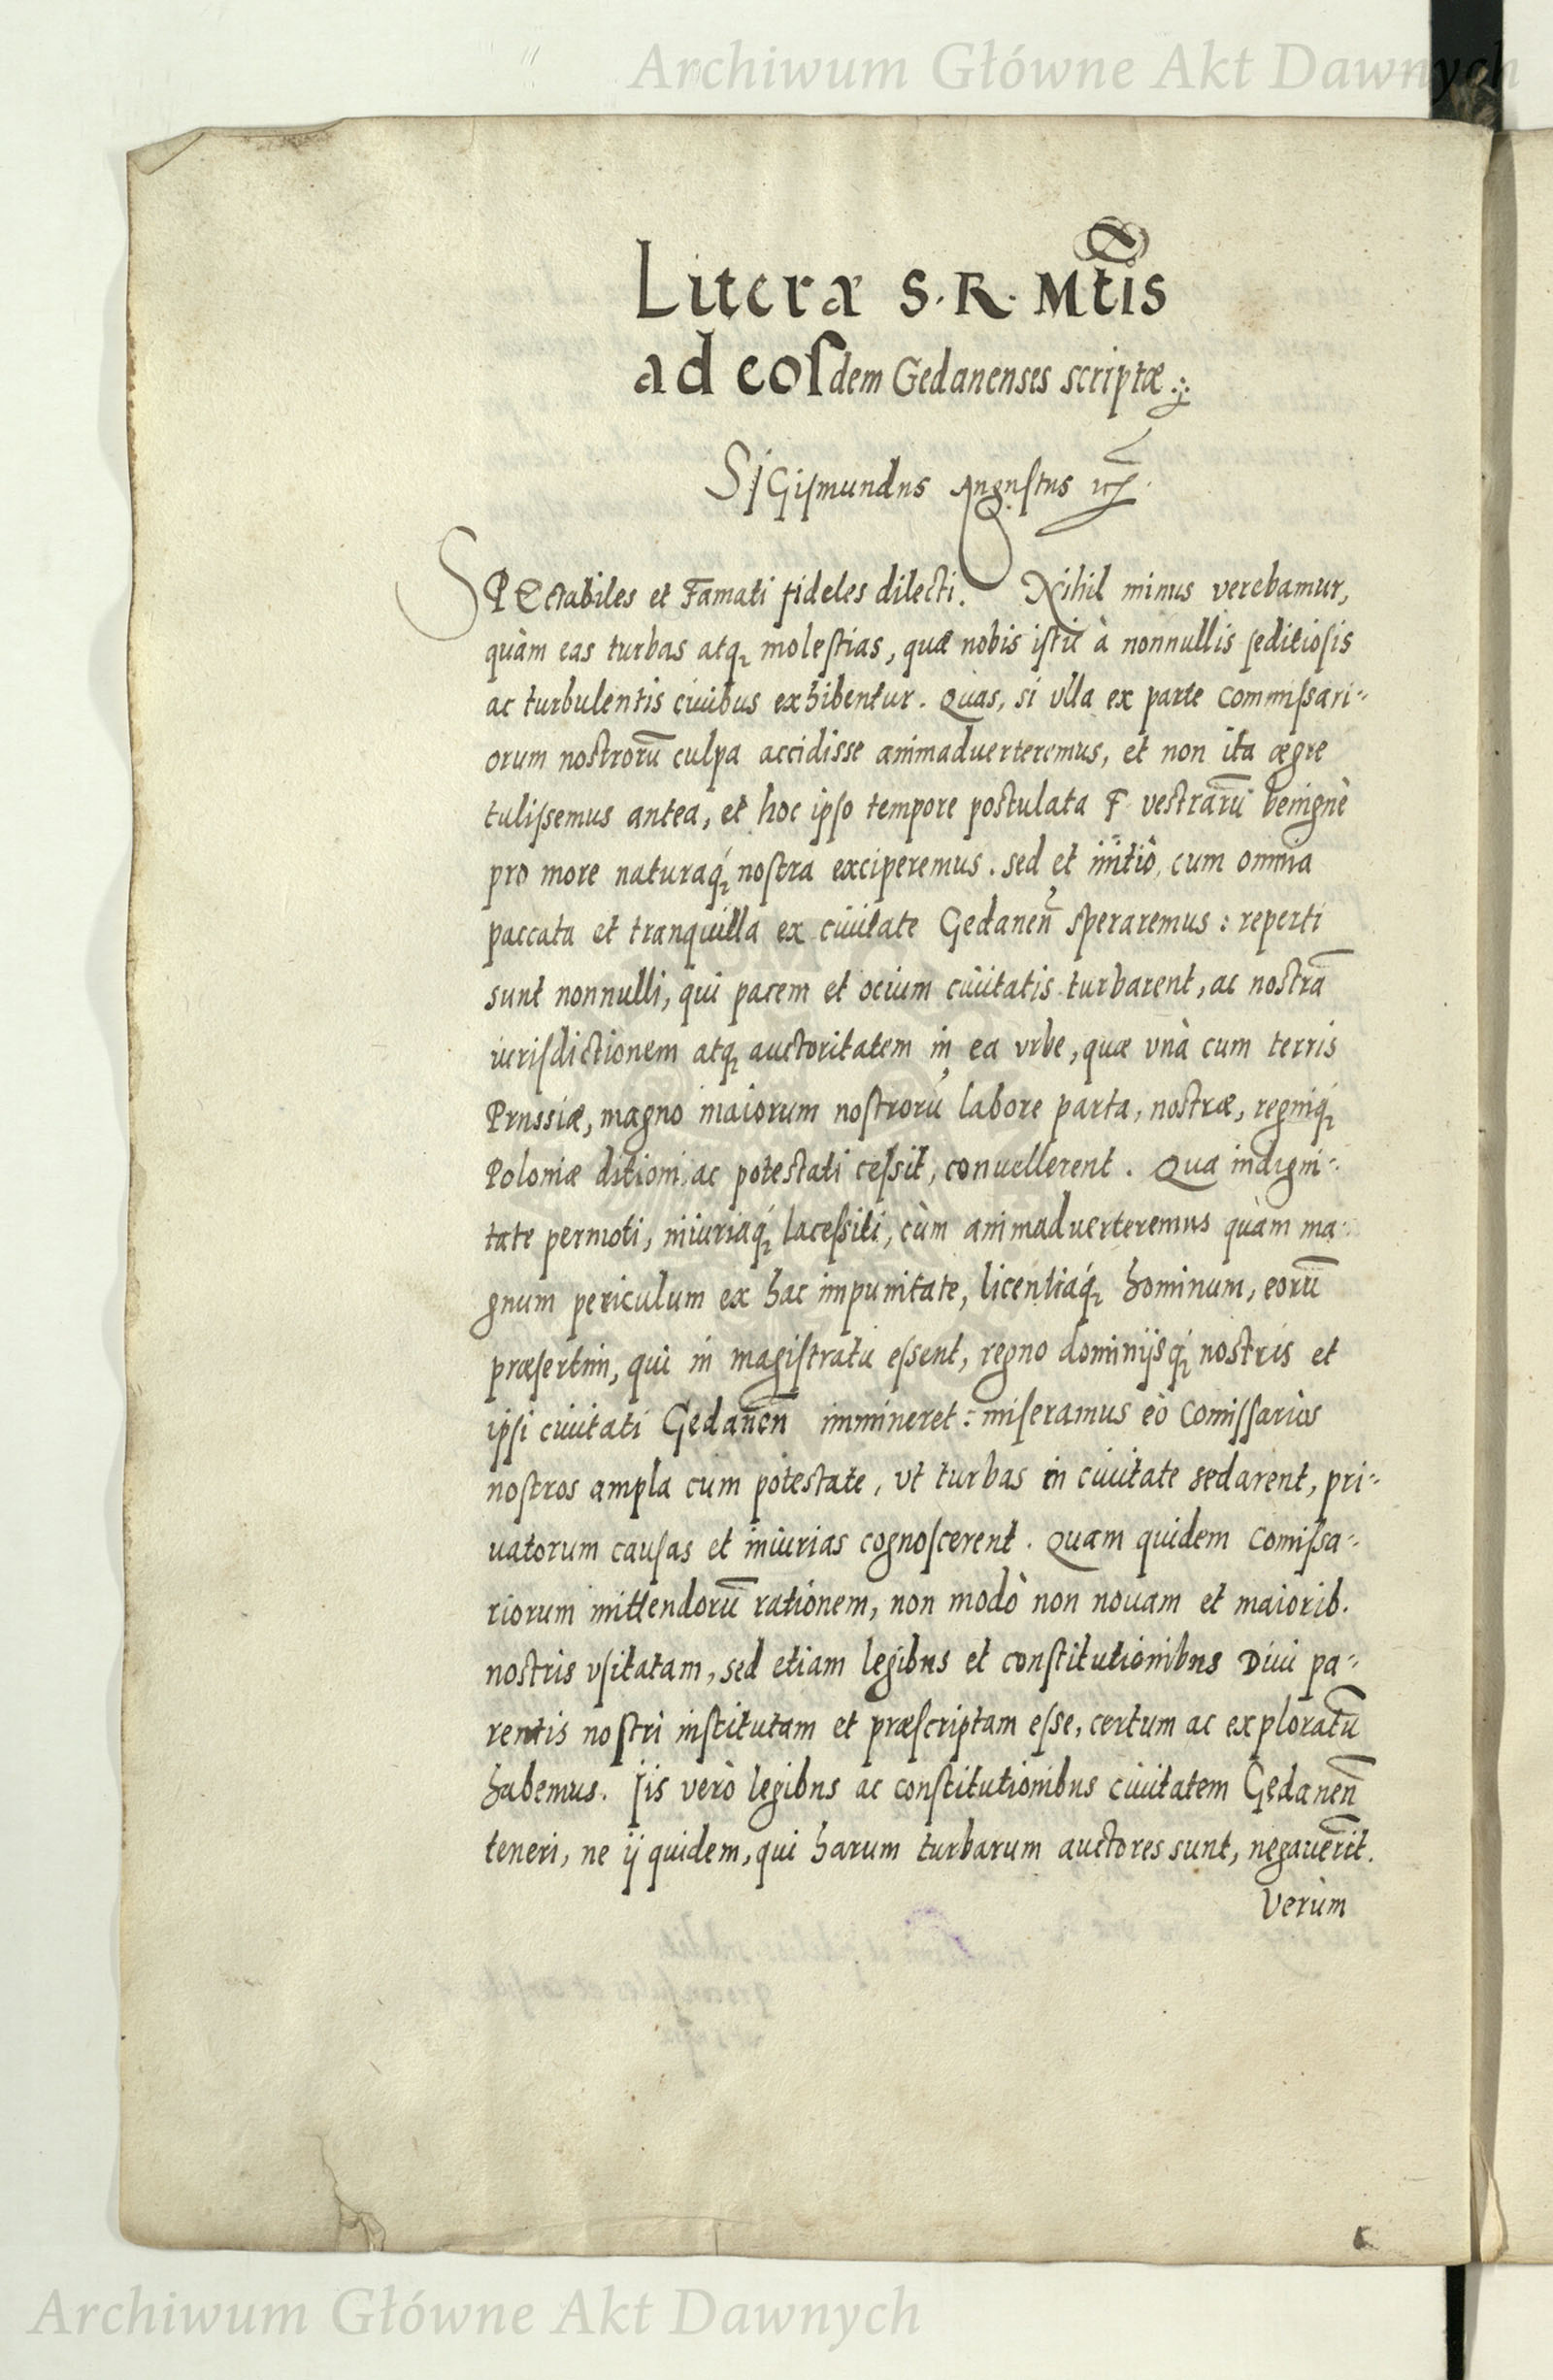 Archiwum Główne Akt Dawnych
Literæ S. R. Mtis
ad eosdem Gedanenses scriptæ
Sigismundus Augustus
SPEctabiles et Famati fideles dilecti. Nihil minus verebamur,
quàm eas turbas atq; molestias, quæ nobis istic à nonnullis seditiosis
ac turbulentis ciuibus exhibentur. Quas, si vlla ex parte Commissari-
orum nostrorū culpa accidisse animaduerteremus, et non ita ægre
tulissemus antea, et hoc ipso tempore postulata F. vestrarū benignè
pro more naturaq́; nostra exciperemus. sed et initiò, cum omnia
paccata et tranquilla ex ciuitate Gedaneñ speraremus: reperti
sunt nonnulli, qui pacem et ocium ciuitatis turbarent, ac nostrā
iurisdictionem atq; auctoritatem in ea vrbe, quæ vnà cum terris
Prussiæ, magno maiorum nostrorū labore parta, nostræ, regniq́;
Poloniæ ditioni ac potestati cessit, conuellerent. Qua indigni-
tate permoti, iniuriaq́; lacessiti, cùm animaduerteremus quàm ma-
gnum periculum ex hac impunitate, licentiaq́; hominum, eorū
præsertim, qui in magistratu essent, regno dominijsq́; nostris et
ipsi ciuitati Gedaneñ immineret: miseramus eò Comissarios
nostros ampla cum potestate, vt turbas in ciuitate sedarent, pri-
uatorum causas et iniurias cognoscerent. Quam quidem Comissa-
riorum mittendorū rationem, non modò non nouam et maiorib.
nostris vsitatam, sed etiam legibus et constitutionibus Diui pa-
rentis nostri institutam et præscriptam esse, certum ac exploratū
habemus. Iis verò legibus ac constitutionibus ciuitatem Gedaneñ
teneri, ne ij quidem, qui harum turbarum auctores sunt, negauer̃it.
Verùm
Archiwum Główne Akt Dawnych